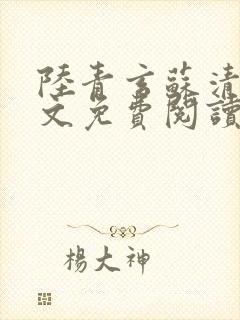 陸青言蘇清
文免費閱讀
楊大神